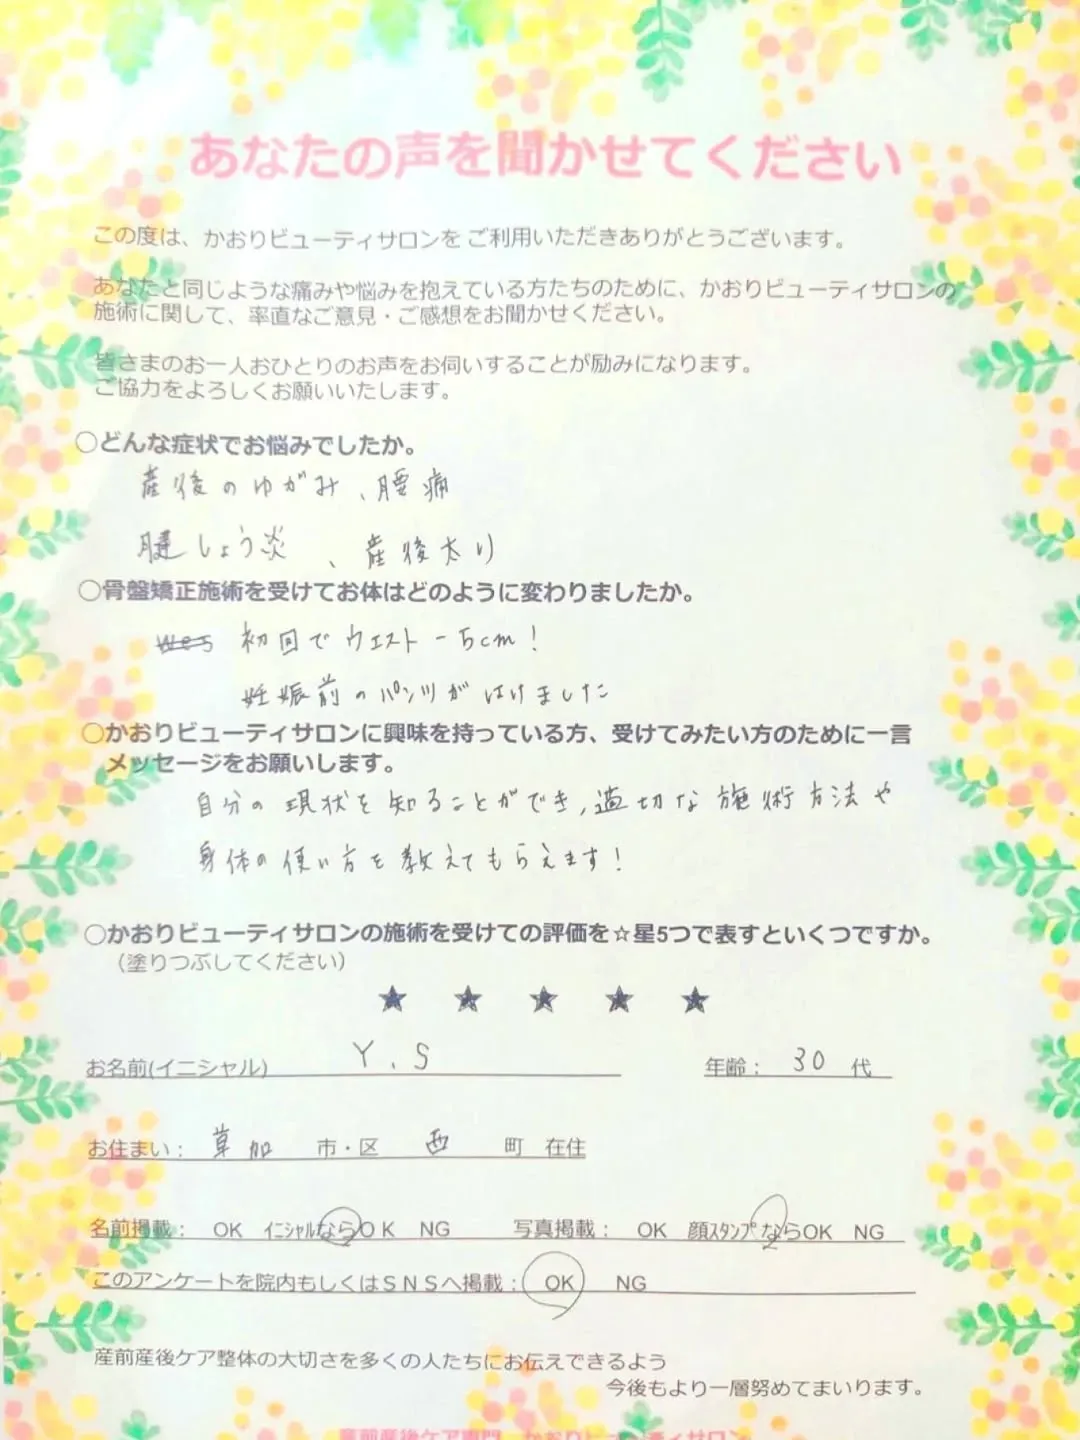 あなたの声を聞かせてください
この度は、かおりビューティサロンを ご利用いただきありがとうございます。
あなたと同じような痛みや悩みを抱えている方たちのために、かおりビューティサロンの
施術に関して、率直なご意見・ご感想をお聞かせください。
皆さまのお一人おひとりのお声をお伺いすることが励みになります。
ご協力をよろしくお願いいたします。
○どんな症状でお悩みでしたか。
産後のゆがみ、腰痛
腱しょう炎、産後太り
○骨盤矯正施術を受けてお体はどのように変わりましたか。
初回でウエスト-5cm!
妊娠前のパンツがはけました
○かおりビューティサロンに興味を持っている方、受けてみたい方のために一言
メッセージをお願いします。
自分の現状を知ることができ,適切な施術方法や
身体の使い方を教えてもらえます!
○かおりビューティサロンの施術を受けての評価を☆星5つで表すといくつですか。
（塗りつぶしてください）
★ ★ ★ ★ ★
お名前(イニシャル) Y.S 年齢： 30 代
お住まい： 草加 市・区 西 町 在住
名前掲載： OK イニシャルならOK NG 写真掲載： OK 顔スタンプならOK NG
このアンケートを院内もしくはSNSへ掲載： OK NG
産前産後ケア整体の大切さを多くの人たちにお伝えできるよう
今後もより一層努めてまいります。
産前産後ケア専門 かおりビューティサロン